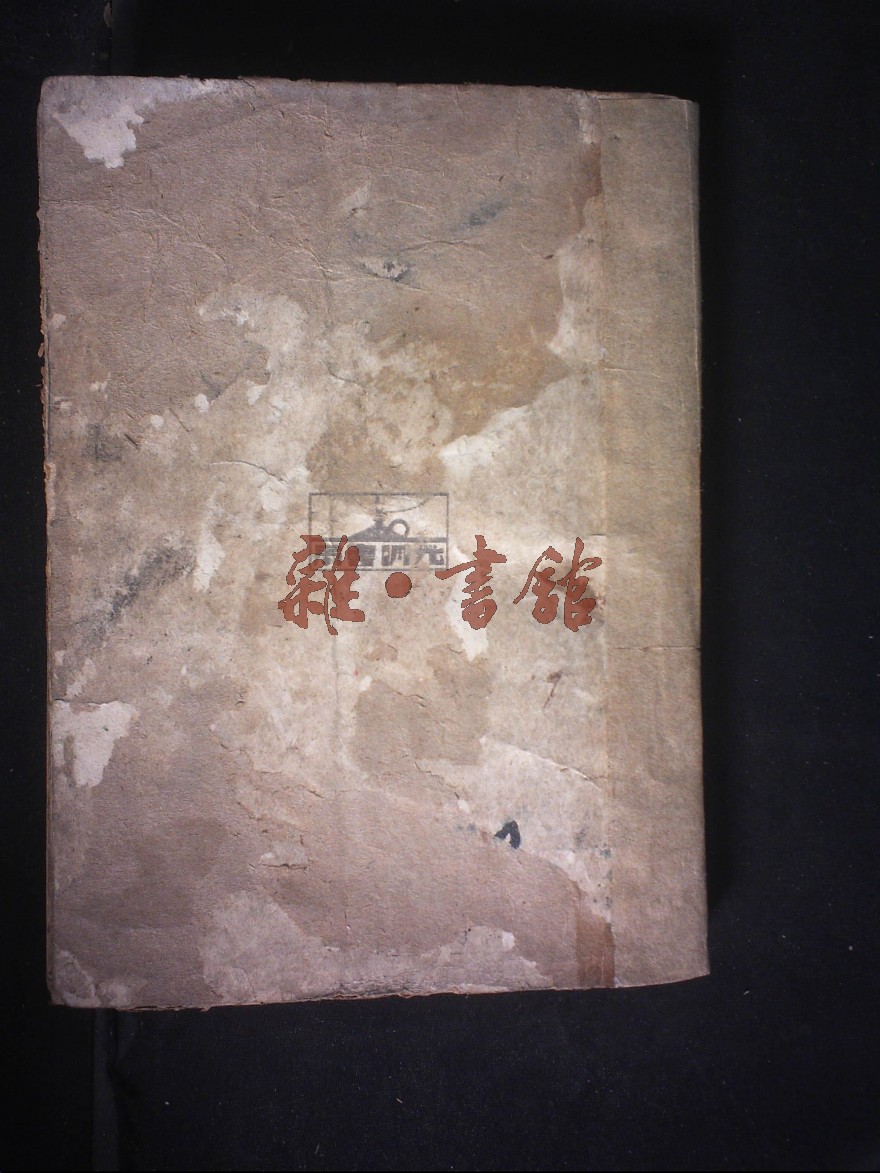 光明書局
雜·書館